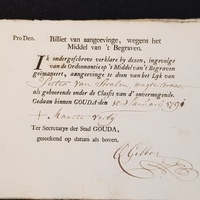 Pro Deo. Billiet van aangeevinge, wegens het
Middel van 't Begraven.
IK ondergeschreve verklare by dezen, ingevolge
van de Ordonnantie op 't Middel van 't Begraven
geëmaneert, aangeevinge te doen van het Lyk van
Pieter van Straten
als gehoorende onder de Classis van d'onvermogende.
Gedaan binnen GOUDA den 10 Januarij 1791
Ter Secretarye der Stad GOUDA,
geteekend op datum als boven.